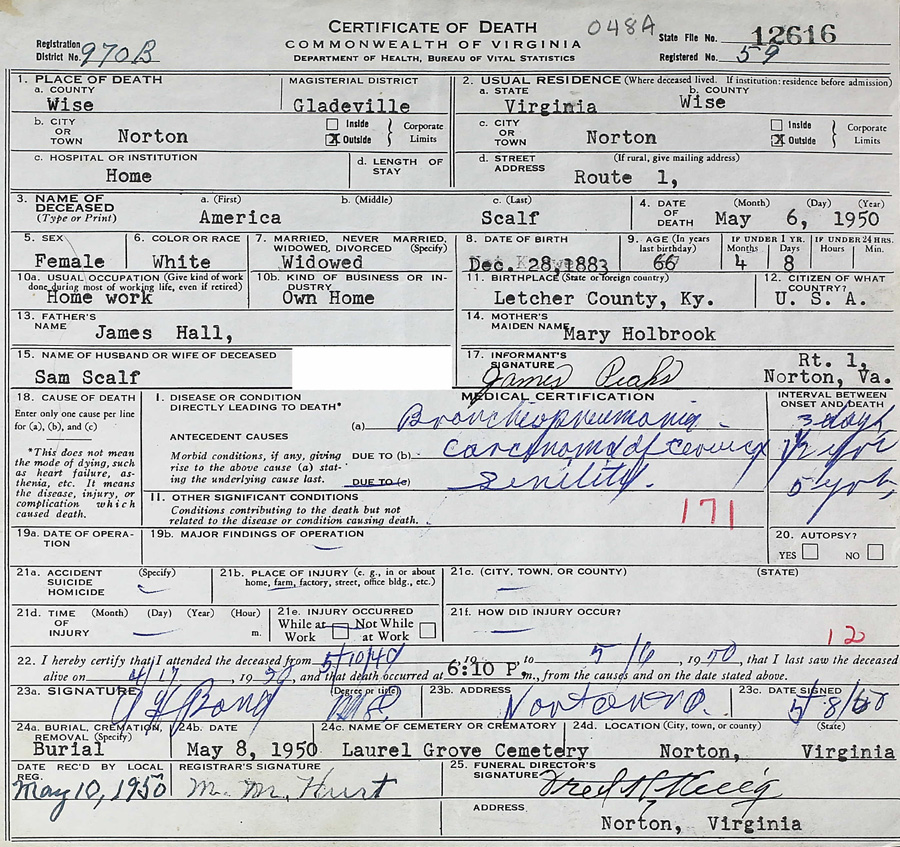 CERTIFICATE OF DEATH
048A
COMMONWEALTH OF VIRGINIA
DEPARTMENT OF HEALTH, BUREAU OF VITAL STATISTICS
Registration District No. 970B
State File No. 12616
Registered No. 59
1. PLACE OF DEATH
a. COUNTY
Wise
MAGISTERIAL DISTRICT
Gladeville
2. USUAL RESIDENCE (Where deceased lived. If institution: residence before admission)
a. STATE
Virginia
b. COUNTY
Wise
b. CITY OR TOWN Norton
Inside
X Outside
Corporate Limits
c. CITY OR TOWN Norton
Inside
X Outside
Corporate Limits
c. HOSPITAL OR INSTITUTION
Home
d. LENGTH OF STAY
d. STREET ADDRESS
(If rural, give mailing address)
Route 1,
3. NAME OF DECEASED
(Type or Print)
a. (First)
America
b. (Middle)
c. (Last)
Scalf
4. DATE OF DEATH
(Month) (Day) (Year)
May 6, 1950
5. SEX
Female
6. COLOR OR RACE
White
7. MARRIED, NEVER MARRIED, WIDOWED, DIVORCED (Specify)
Widowed
8. DATE OF BIRTH
Dec. 28,1883
9. AGE (In years last birthday)
66
IF UNDER 1 YR.
Months Days
4 8
IF UNDER 24 HRS.
Hours Min.
10a. USUAL OCCUPATION (Give kind of work done during most of working life, even if retired)
Home work
10b. KIND OF BUSINESS OR INDUSTRY
Own Home
11. BIRTHPLACE (State or foreign country)
Letcher County, Ky.
12. CITIZEN OF WHAT COUNTRY?
U. S. A.
13. FATHER'S NAME
James Hall,
14. MOTHER'S MAIDEN NAME
Mary Holbrook
15. NAME OF HUSBAND OR WIFE OF DECEASED
Sam Scalf
17. INFORMANT'S SIGNATURE
James
Rt. 1,
Norton, Va.
18. CAUSE OF DEATH
Enter only one cause per line for (a), (b), and (c)
*This does not mean the mode of dying, such as heart failure, asthenia, etc. It means the disease, injury, or complication which caused death.
MEDICAL CERTIFICATION
INTERVAL BETWEEN ONSET AND DEATH
I. DISEASE OR CONDITION DIRECTLY LEADING TO DEATH*
(a) Bronchiopneumonia
3 days
ANTECEDENT CAUSES
Morbid conditions, if any, giving rise to the above cause (a) stating the underlying cause last.
DUE TO (b) Carcinoma of cervix
DUE TO (c) Senility.
5 yrs
II. OTHER SIGNIFICANT CONDITIONS
Conditions contributing to the death but not related to the disease or condition causing death.
171
19a. DATE OF OPERATION
19b. MAJOR FINDINGS OF OPERATION
20. AUTOPSY?
YES NO
21a. ACCIDENT SUICIDE HOMICIDE (Specify)
21b. PLACE OF INJURY (e. g., in or about home, farm, factory, street, office bldg., etc.)
21c. (CITY, TOWN, OR COUNTY) (STATE)
21d. TIME OF INJURY (Month) (Day) (Year) (Hour) m.
21e. INJURY OCCURRED
While at Work
Not While at Work
21f. HOW DID INJURY OCCUR?
12
22. I hereby certify that I attended the deceased from 5/10/40, 19 to 5/6, 1950, that I last saw the deceased
alive on 4/17, 1950, and that death occurred at 6:10 P. m., from the causes and on the date stated above.
23a. SIGNATURE
(Degree or title)
23b. ADDRESS
Norton Va.
23c. DATE SIGNED
5/8/50
24a. BURIAL, CREMATION, REMOVAL (Specify)
Burial
24b. DATE
May 8, 1950
24c. NAME OF CEMETERY OR CREMATORY
Laurel Grove Cemetery
24d. LOCATION (City, town, or county) (State)
Norton, Virginia
DATE REC'D BY LOCAL REG.
May 10, 1950
REGISTRAR'S SIGNATURE
M. M. Hurt
25. FUNERAL DIRECTOR'S SIGNATURE
Fred
ADDRESS
Norton, Virginia